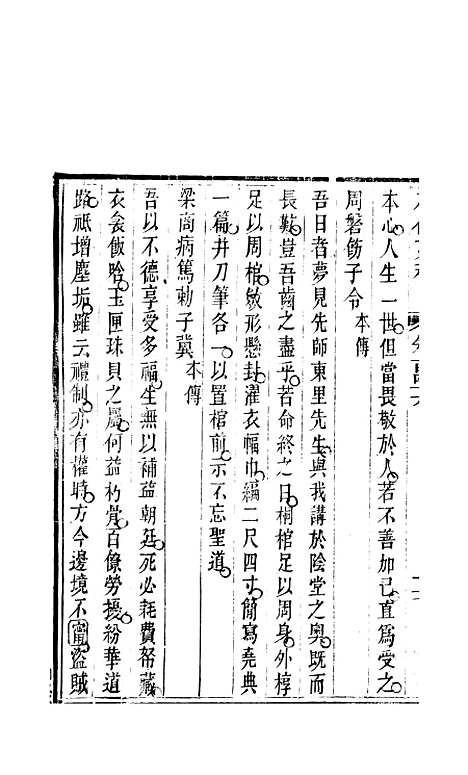 本心人生一世但當畏敬於人若不善加己直爲受之
周磐飭子令本傳
吾日者夢見先師東里先生與我講於陰堂之奧既而
長歎豈吾齒之盡乎若命終之日桐棺足以周身外椁
足以周棺斂形懸封濯衣幅巾編二尺四寸簡寫堯典
一篇并刀筆各一以置棺前示不忘聖道
梁商病篤勅子冀本傳
吾以不德享受多福生無以補益朝廷死必耗費帑藏
衣衾飯晗玉匣珠貝之屬何益朽骨百僚勞擾紛華道
路祇增塵垢雖云禮制亦有權時方今邊境不甯盜賊